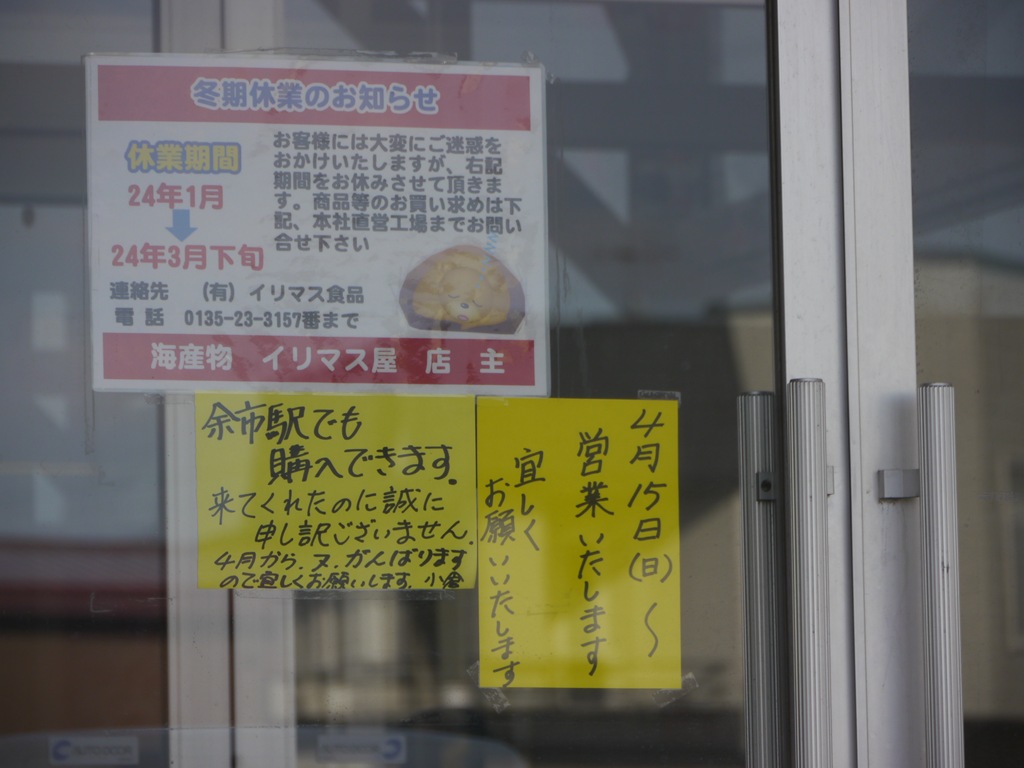 冬期休業のお知らせ
休業期間
24年1月
24年3月下旬
お客様には大変にご迷惑を
おかけいたしますが、右記
期間をお休みさせて頂きま
す。商品等のお買い求めは下
記、本社直営工場までお問い
合せ下さい
連絡先 (有)イリマス食品
電話 0135-23-3157番まで
海産物 イリマス屋 店 主
余市駅でも
購入できます.
来てくれたのに誠に
申し訳ございません.
4月から.ヌ.がんばります
ので宜しくお願いします.小倉
4月15日(日)〜
営業いたします
宜しく
お願いいたします
AUTO DOOR
AUTO DOOR